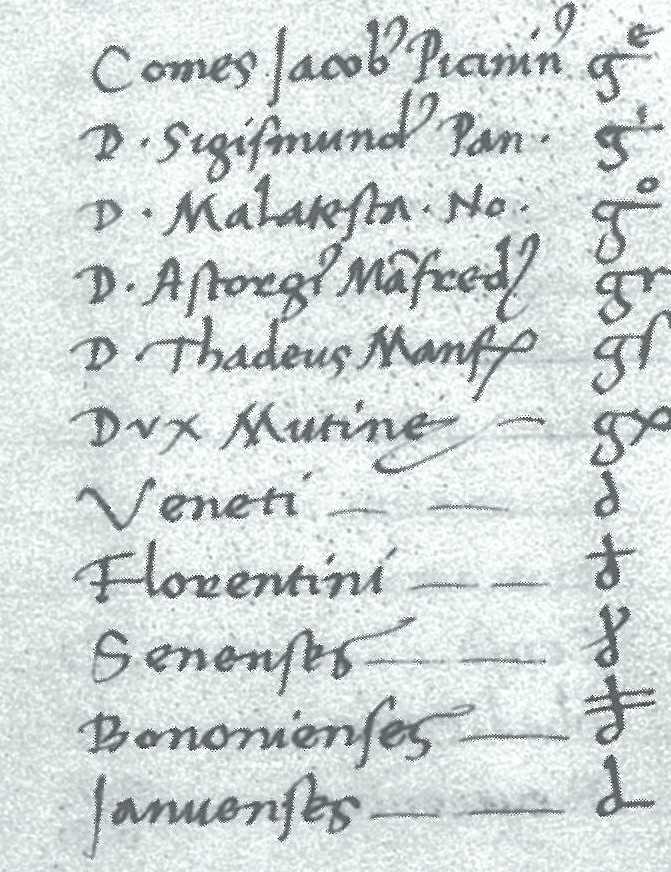 Comes Jacobꝰ Picininꝰ gᵉ
D. Sigiſmundꝰ Pan. gⁱ
D. Malateſta. No. gᵒ
D. Aſtorgiꝰ Mãfredꝰ gr
D. Thadeus Manf gſ
Dvx Mutine — gx
Veneti — — d
Florentini — —
Senenſes — —
Bononienſes —
Januenſes — —